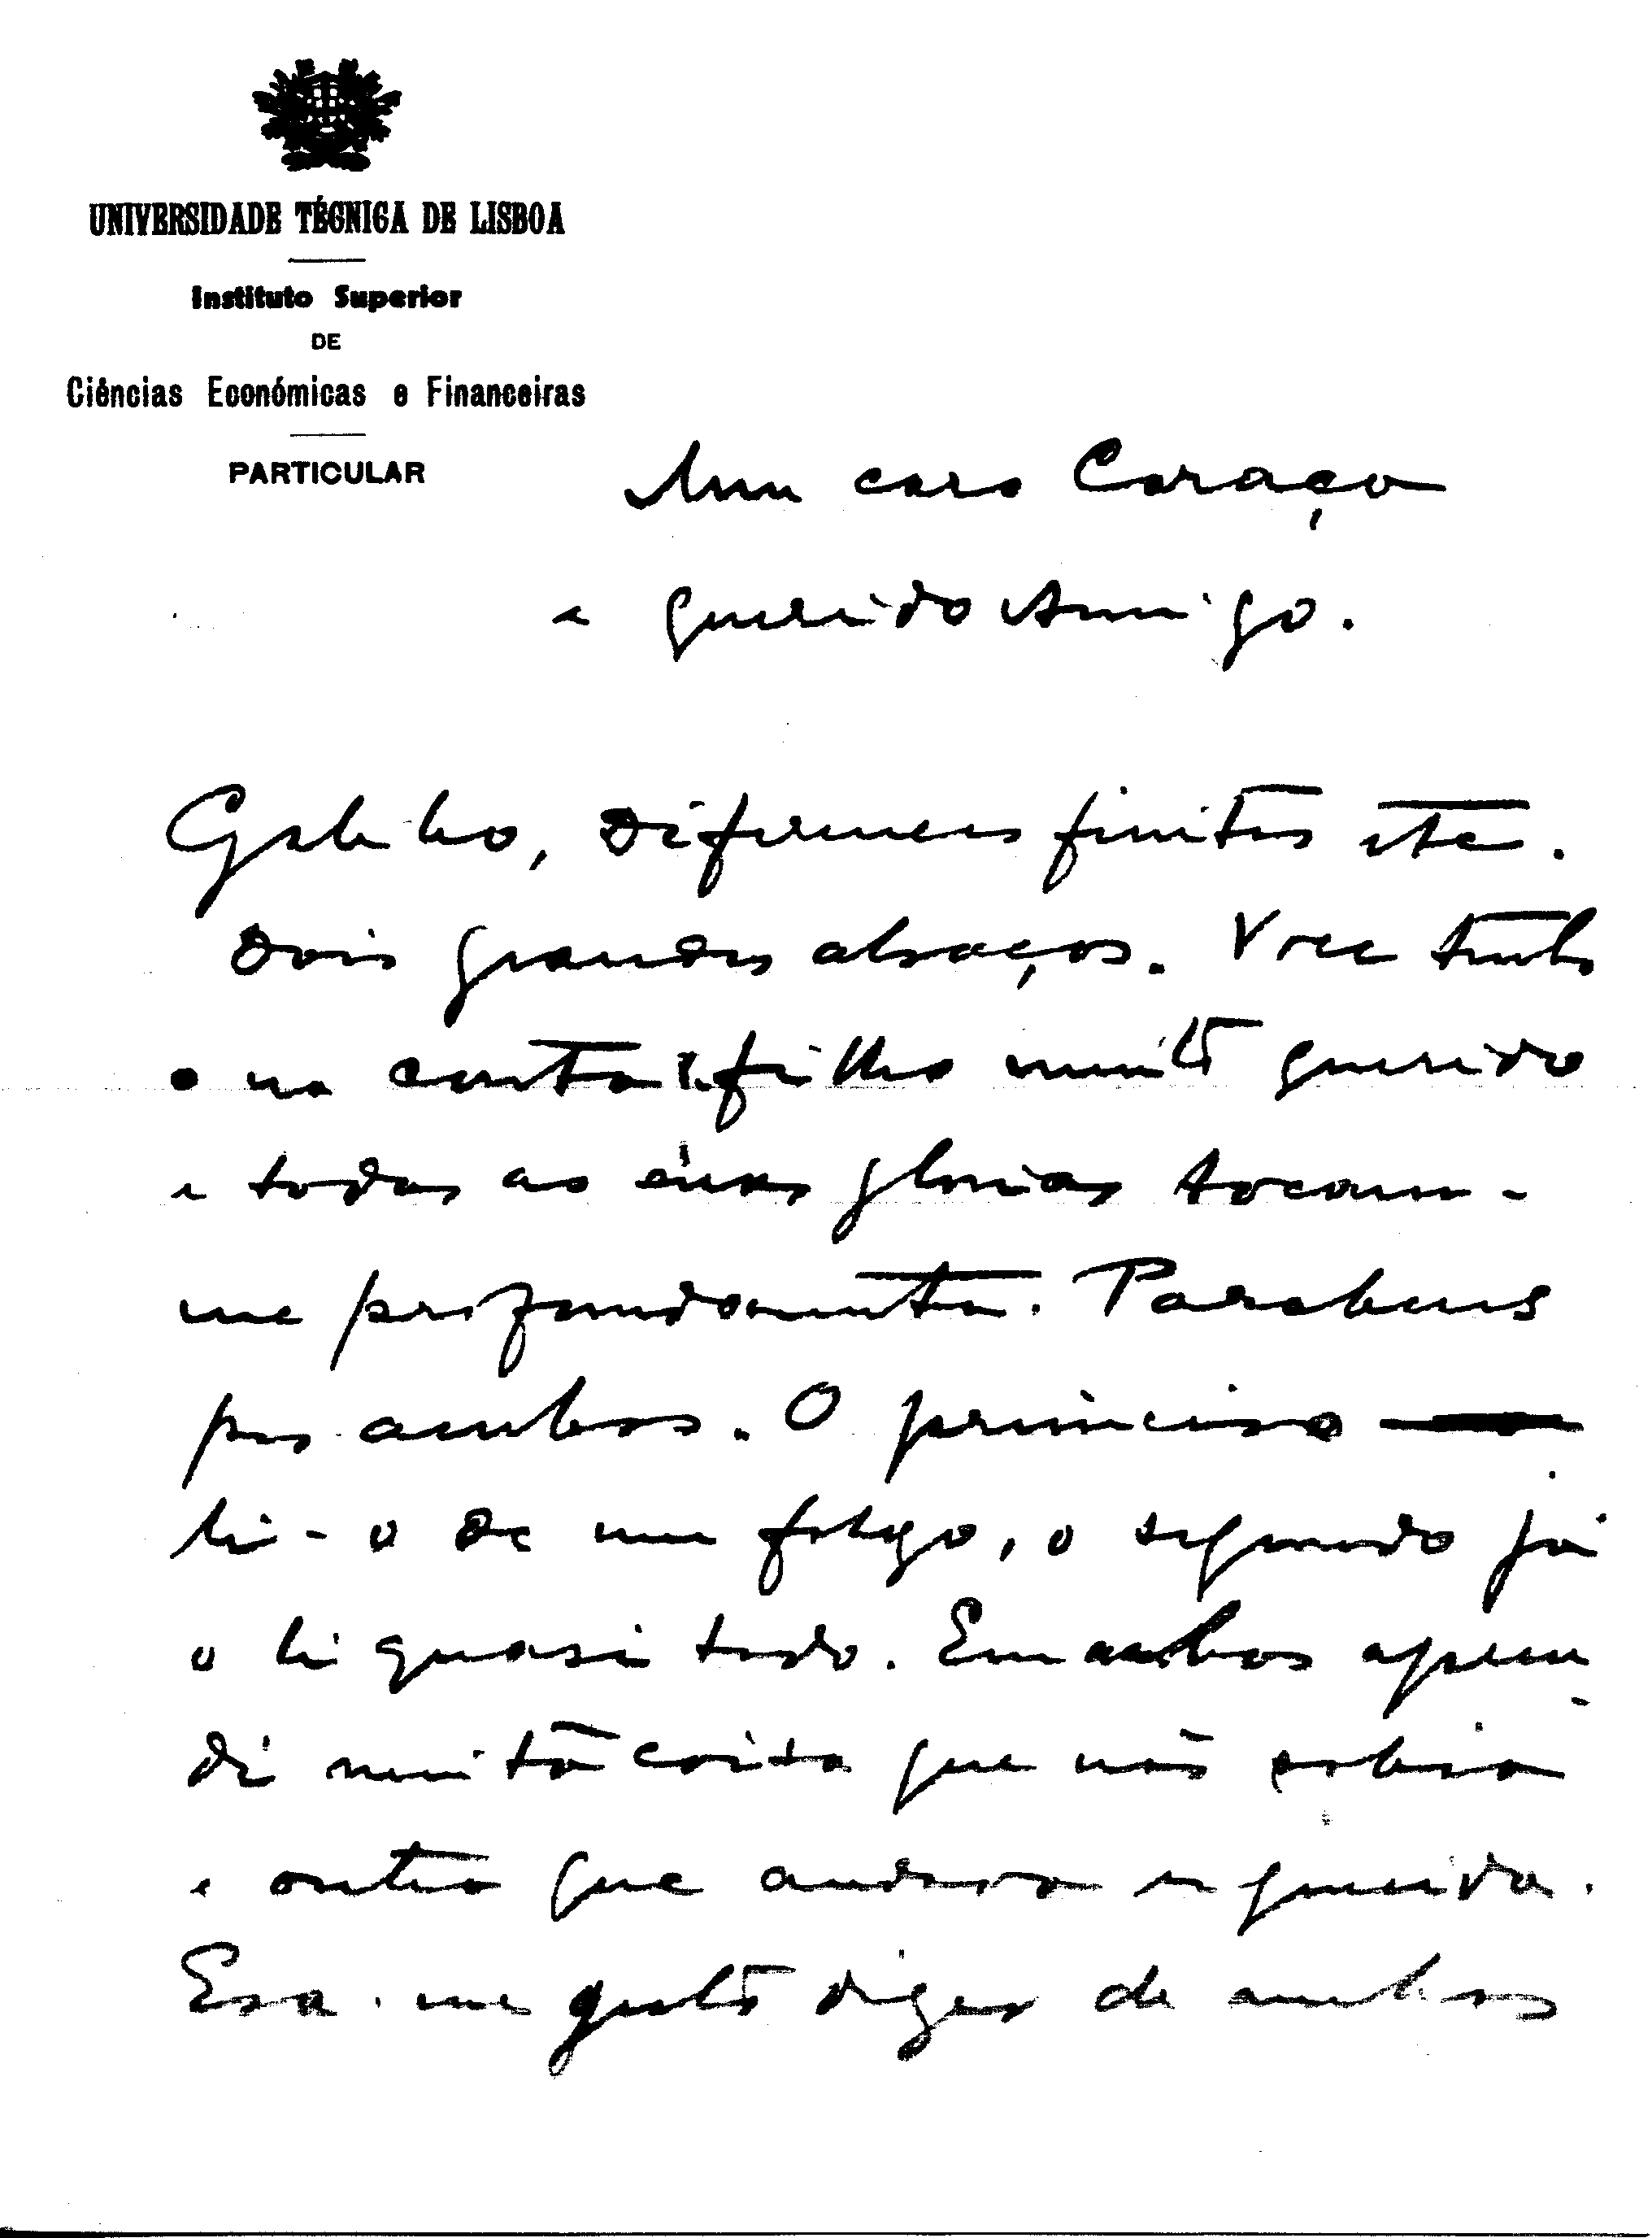 UNIVERSIDADE TÉCNICA DE LISBOA
Instituto Superior
DE
Ciências Económicas e Financeiras
PARTICULAR
Meu caro Caraça
e querido Amigo.
Galileo, Diferenças finitas etc.
Dois grandes abraços. Voce tenho
o na conta de filho muito querido
e todas as suas glorias tocam-
me profundamente. Parabens
por ambos. O primeiro
li-o de um folego, o segundo já
o li quasi todo. Em ambos apren
di muita coisa que não sabia
e outra que andava esquecida.
Era-me grato dizer de ambos